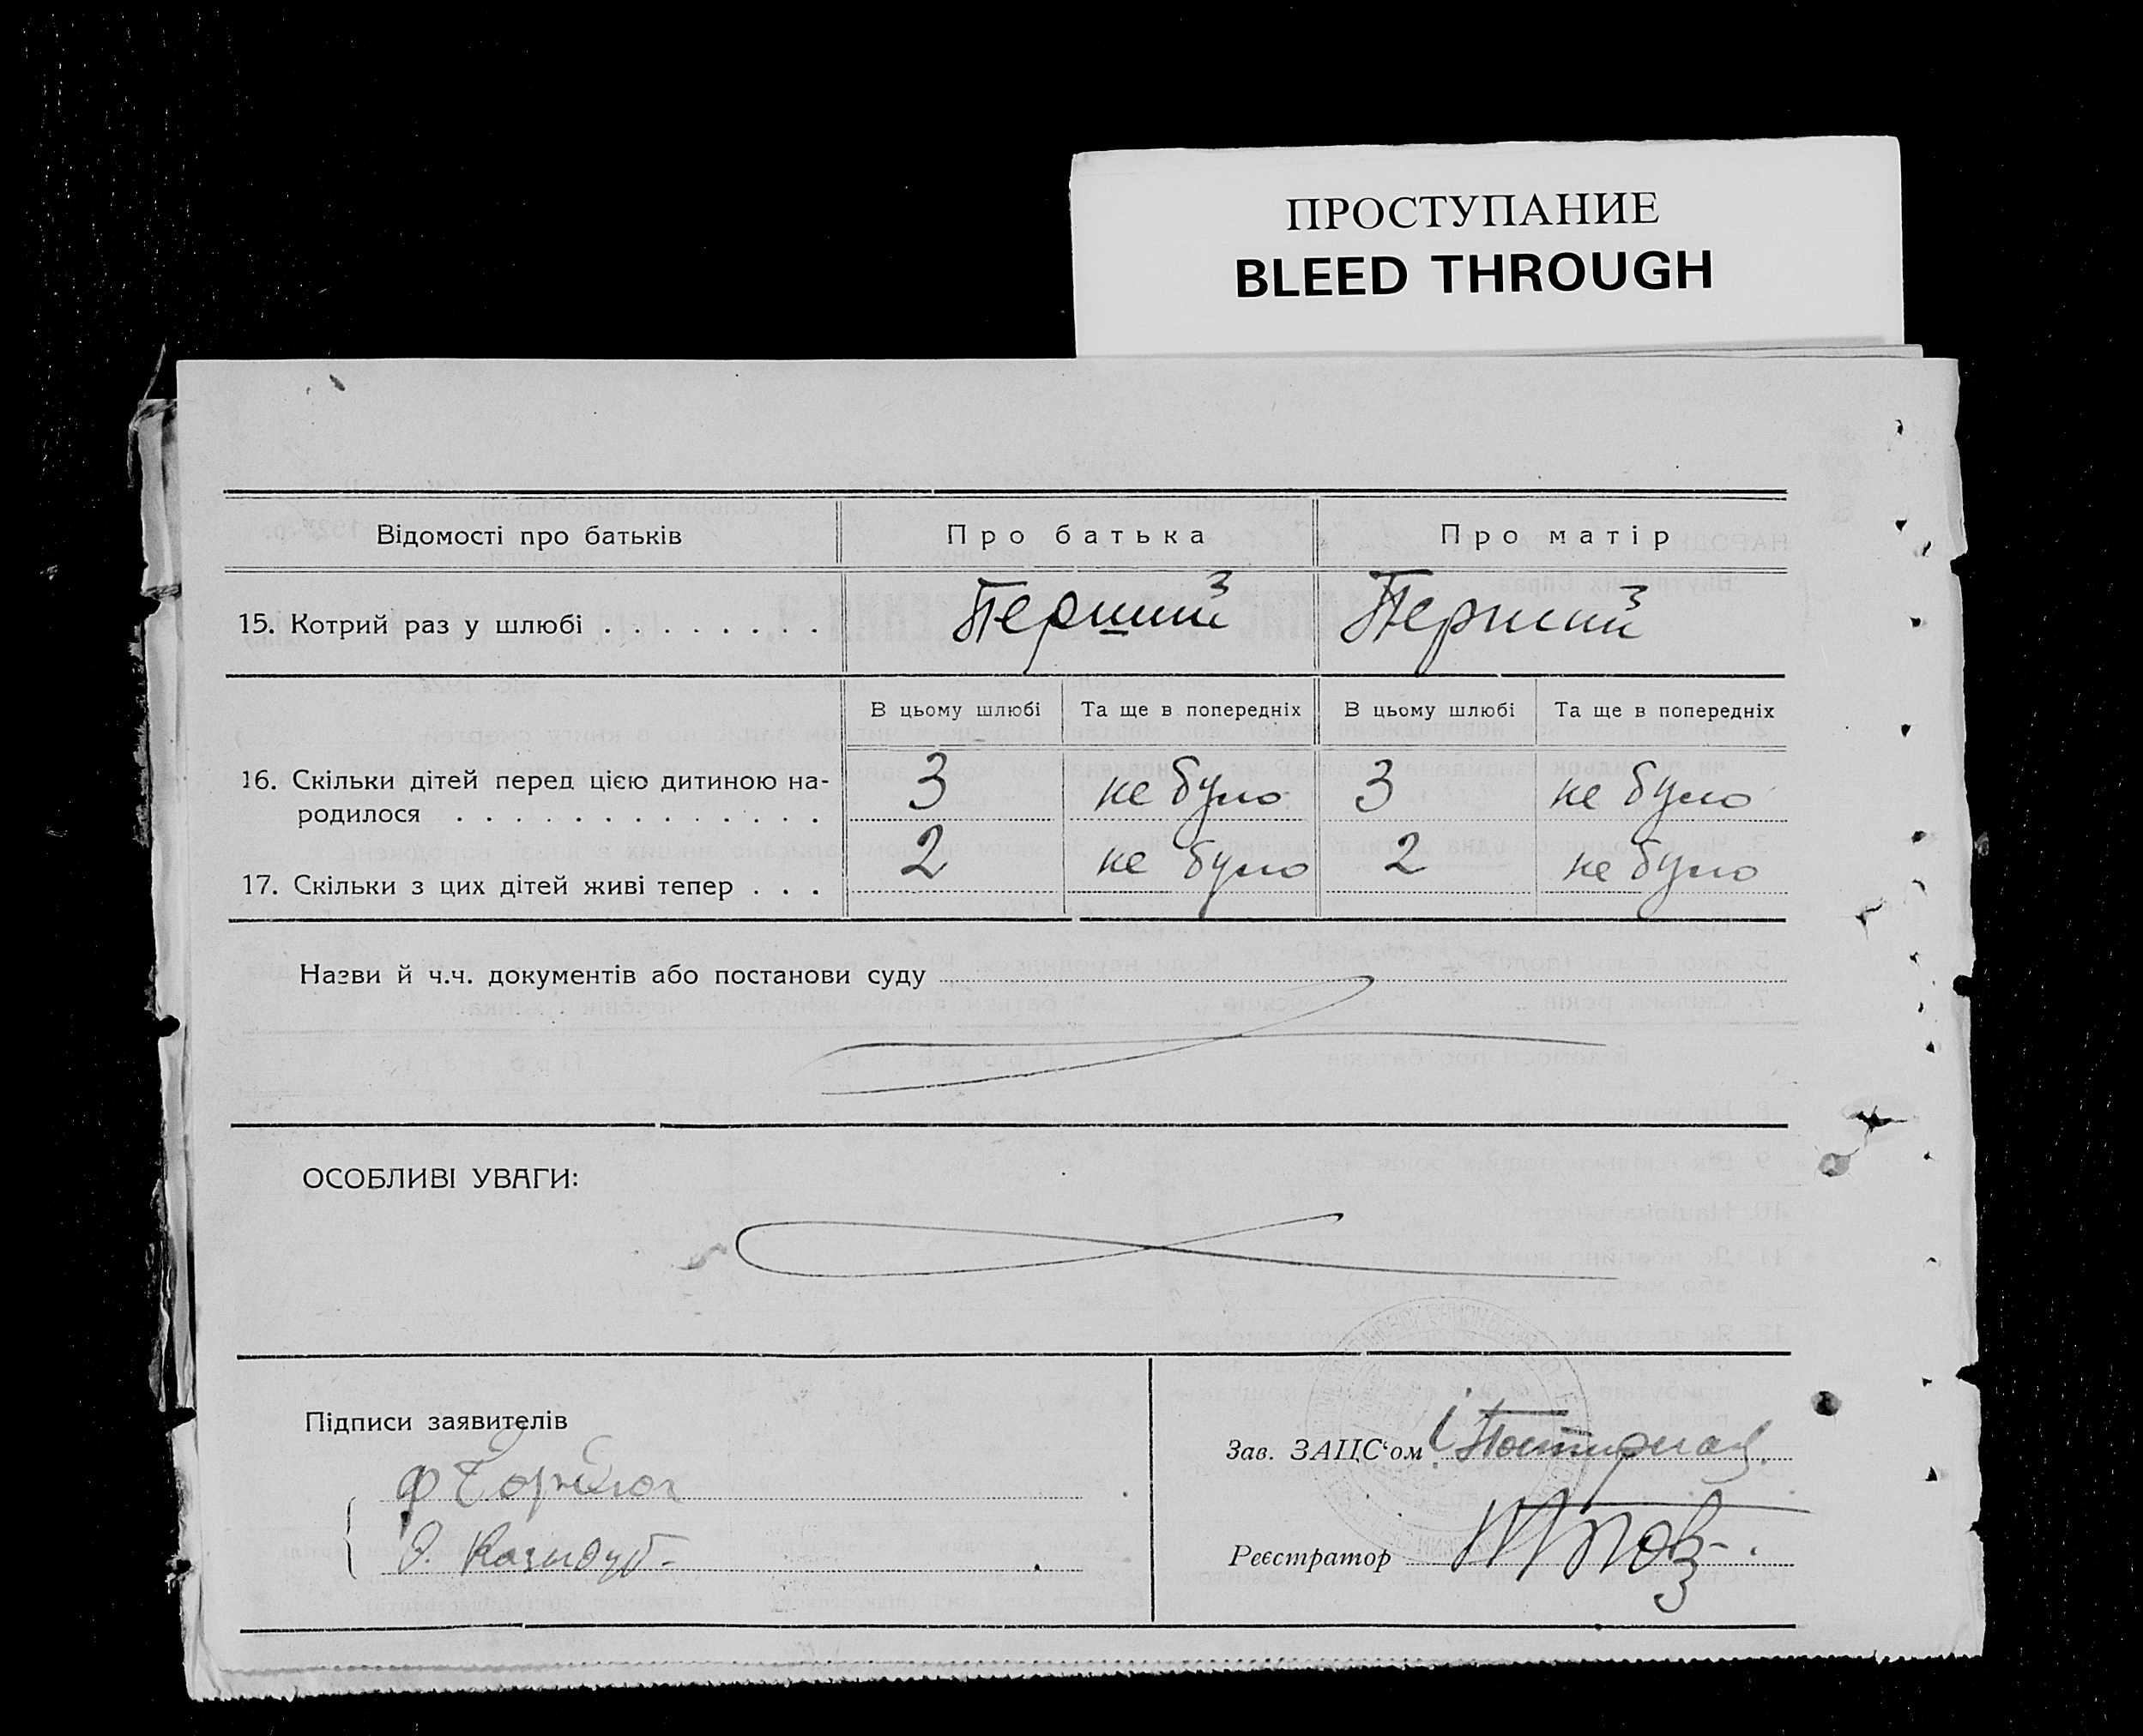 ПРОСТУПАНИЕ
BLEED THROUGH
Відомості про батьків Про батька Про матір
15. Котрий раз у шлюбі . . . . . . . . Перший Перший
В цьому шлюбі Та ще в попередніх В цьому шлюбі Та ще в попередніх
16. Скільки дітей перед цією дитиною на-
родилося . . . . . . . . . . . . . 3 не було 3 не було
17. Скільки з цих дітей живі тепер . . . 2 не було 2 не було
Назви й ч.ч. документів або постанови суду
ОСОБЛИВІ УВАГИ:
Підписи заявителів
Зав. ЗАЦС‘ом
Ф
О. Казидуб
Реєстратор